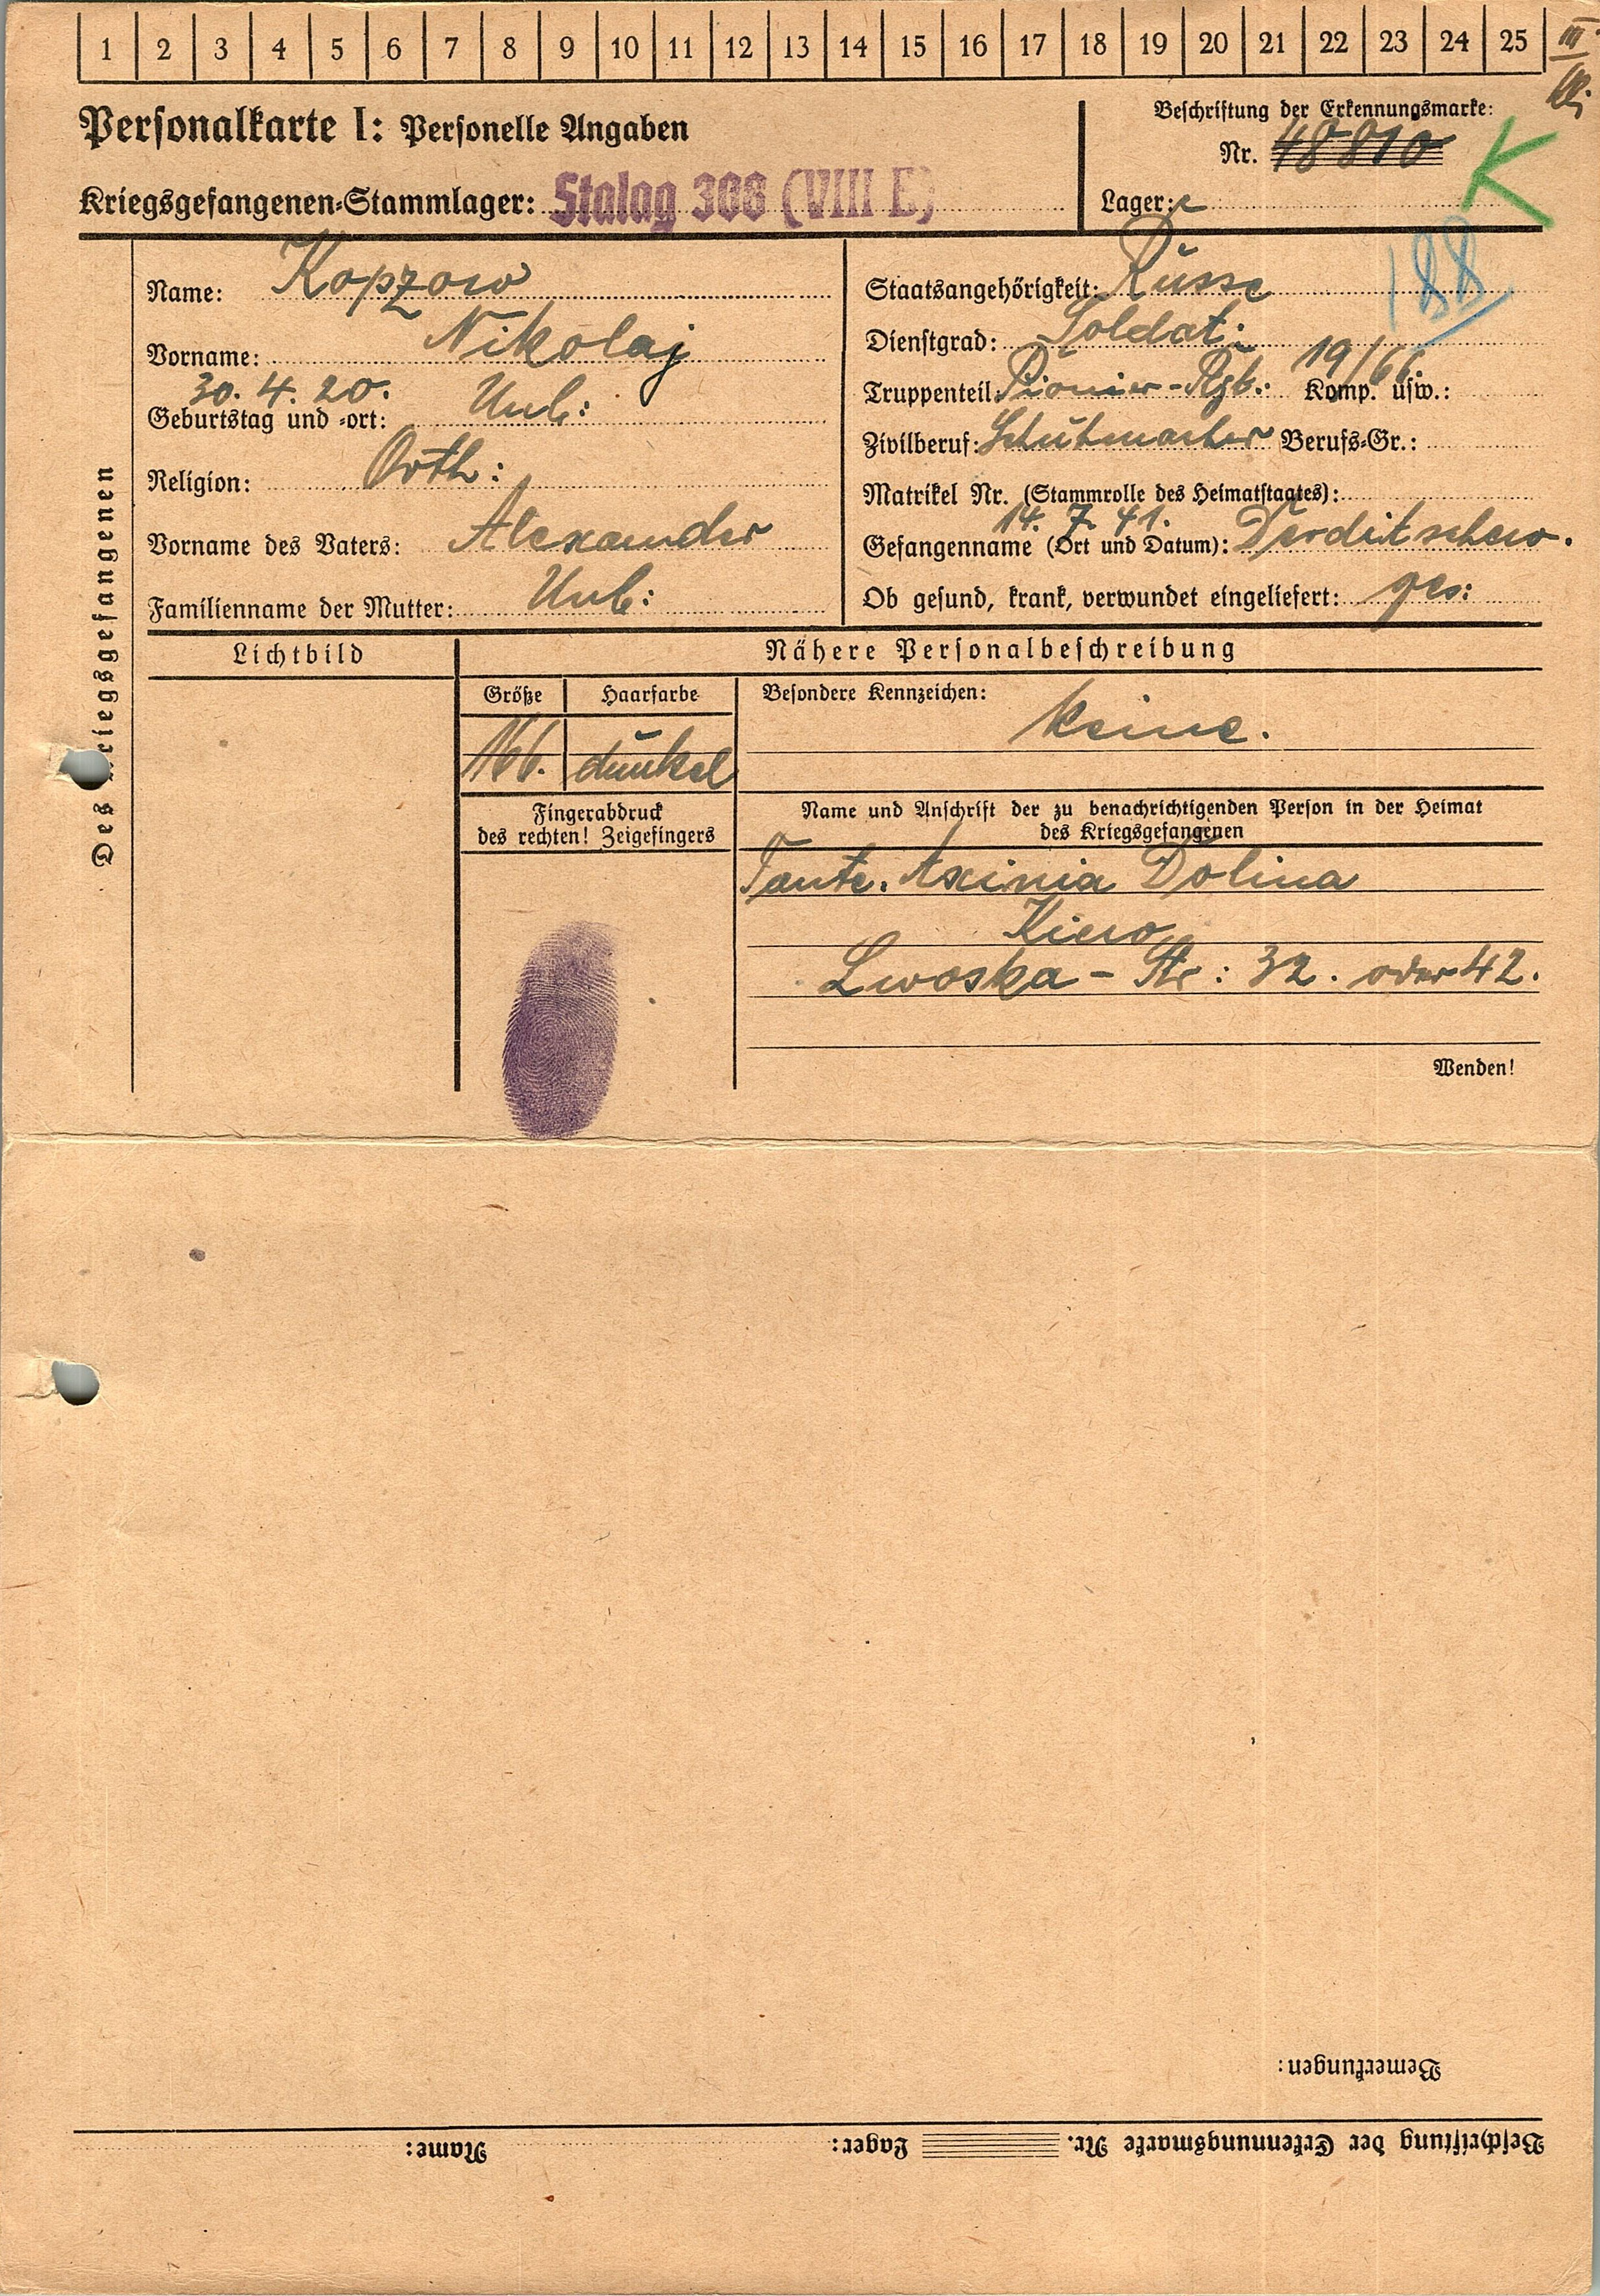 1 2 3 4 5 6 7 8 9 10 11 12 13 14 15 16 17 18 19 20 21 22 23 24 25 III
Personalkarte I: Personelle Angaben
Beschriftung der Erkennungsmarke:
Nr. 48810
K
Kriegsgefangenen-Stammlager: Stalag 308 (VIII E)
Lager:
188
Name: Kopzow
Vorname: Nikolaj
30. 4. 20.
Geburtstag und -ort: Unb:
Religion: Orth:
Vorname des Vaters: Alexander
Familienname der Mutter: Unb:
Staatsangehörigkeit: Russe
Dienstgrad: Soldat:
Truppenteil: Pionier-Rgb.: 19/66. Komp. usw.:
Zivilberuf: Schuhmacher Berufs-Gr.:
Matrikel Nr. (Stammrolle des Heimatstaates):
14. 7. 41.
Gefangenname (Ort und Datum): Derditschew.
Ob gesund, krank, verwundet eingeliefert: ges:
Des Kriegsgefangenen
Lichtbild
Nähere Personalbeschreibung
Größe Haarfarbe
166. dunkel
Besondere Kennzeichen:
keine.
Fingerabdruck
des rechten! Zeigefingers
Name und Anschrift der zu benachrichtigenden Person in der Heimat
des Kriegsgefangenen
Tante. Axinia Dolina
Kiew
Lwoska - Str: 32. oder 42.
Wenden!
Bemerkungen:
Beschriftung der Erkennungsmarke Nr. Lager: Name: